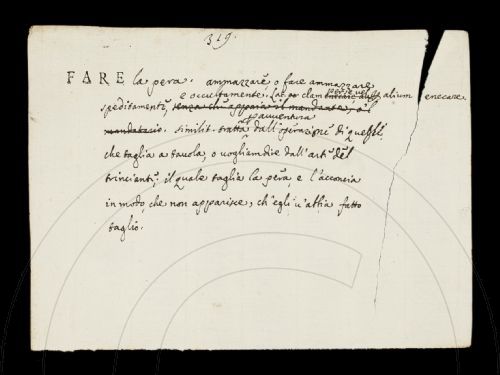 319.
FARE la pera. ammazzare o fare ammazzare
e occultamente. Lat. clam alium enecare
speditamente, senza che apparia il mandante, o il
p avventura
mandatario. similit. tratta dall'operazione di quegli,
che taglia a tavola, o vogliam dire dall'arte del
trinciante, il quale taglia la pera, e l'acconcia
in modo, che non apparisce, ch'egli v'abbia fatto
taglio.